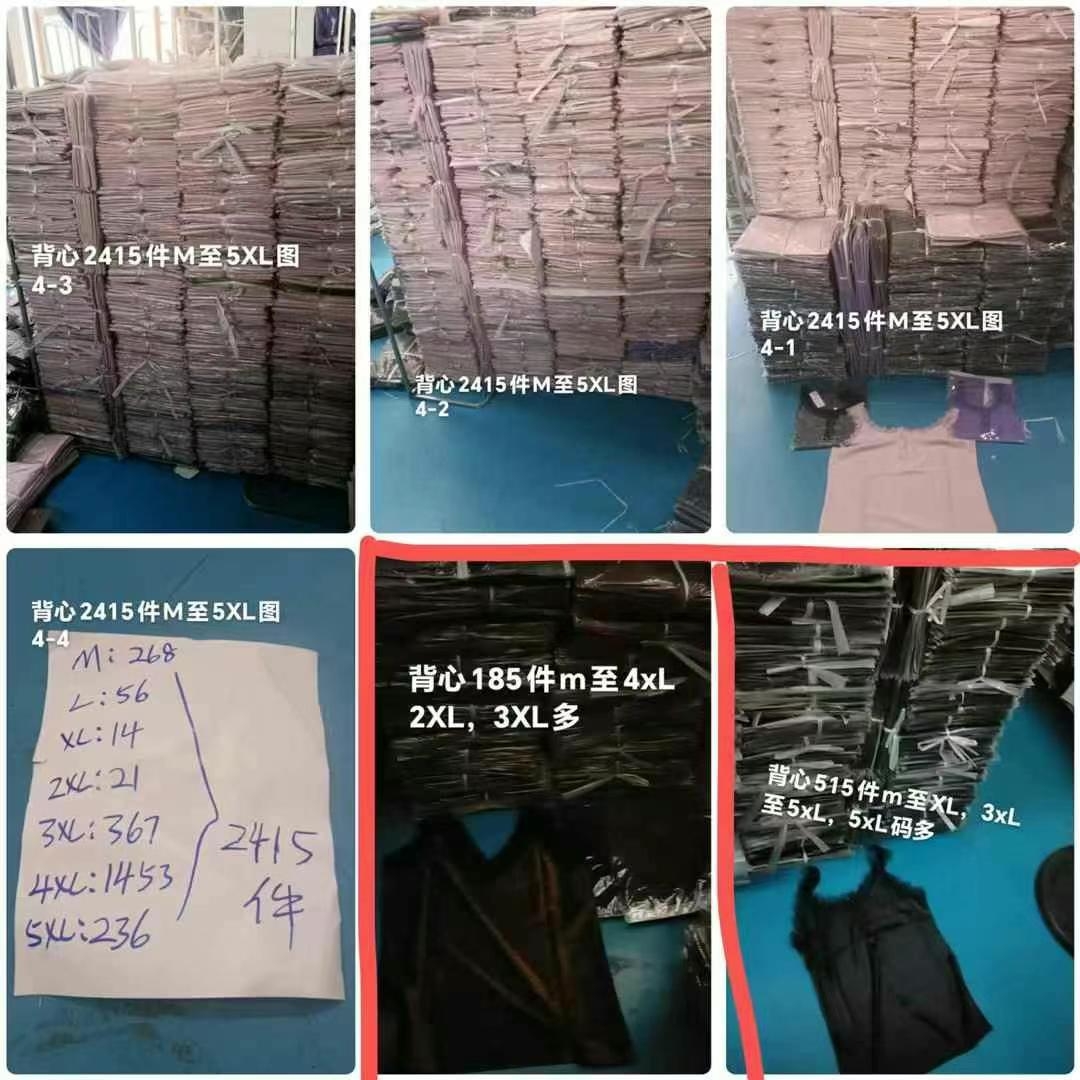 背心2415件M至5XL图
4-3
背心2415件M至5XL图
4-2
背心2415件M至5XL图
4-1
背心2415件M至5XL图
4-4
M: 268
L: 56
XL: 14
2XL: 21
3XL: 367
4XL: 1453
5XL: 236
2415
件
背心185件m至4xL
2XL，3XL多
背心515件m至XL，3xL
至5xL，5xL码多